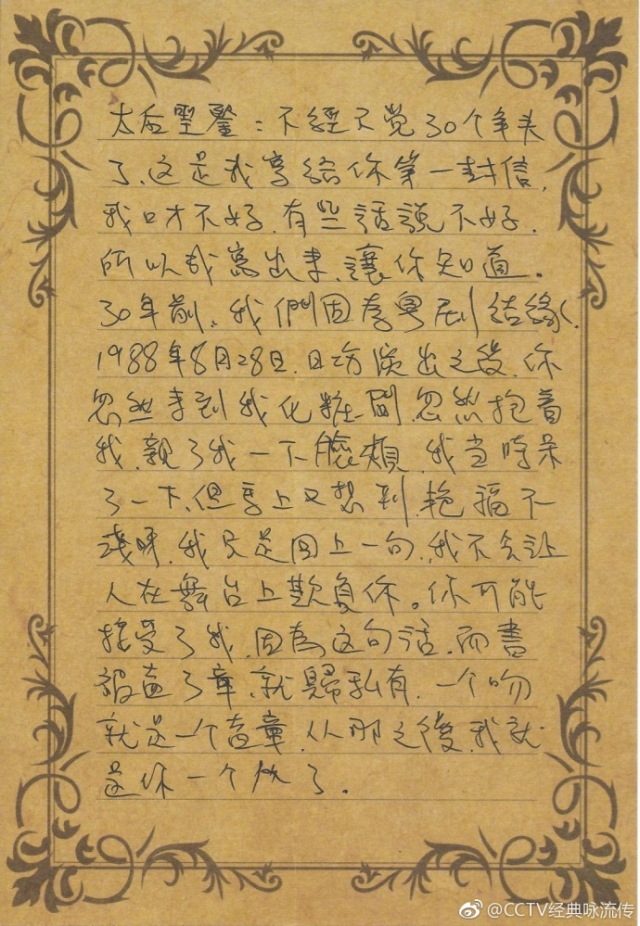 太后聖鑒：不經不覺30个年头
了、这是我寫給你第一封信,
我口才不好.有些话說不好.
所以我寫出来.讓你知道。
30年前、我們因為粤剧結緣.
1988年8月28日.日场演出之後.你
忽然来到我化粧間.忽然抱着
我.親了我一下臉頰.我当時呆
了一下、但馬上又想到.艳福不
浅呀.我只是回上一句.我不会让
人在舞台上欺負你。你可能
接受了我.因為这句话.而書
被盖了章.就歸私有.一个吻
就是一个盖章.从那之後.我就
是你一个 了.
@CCTV经典咏流传